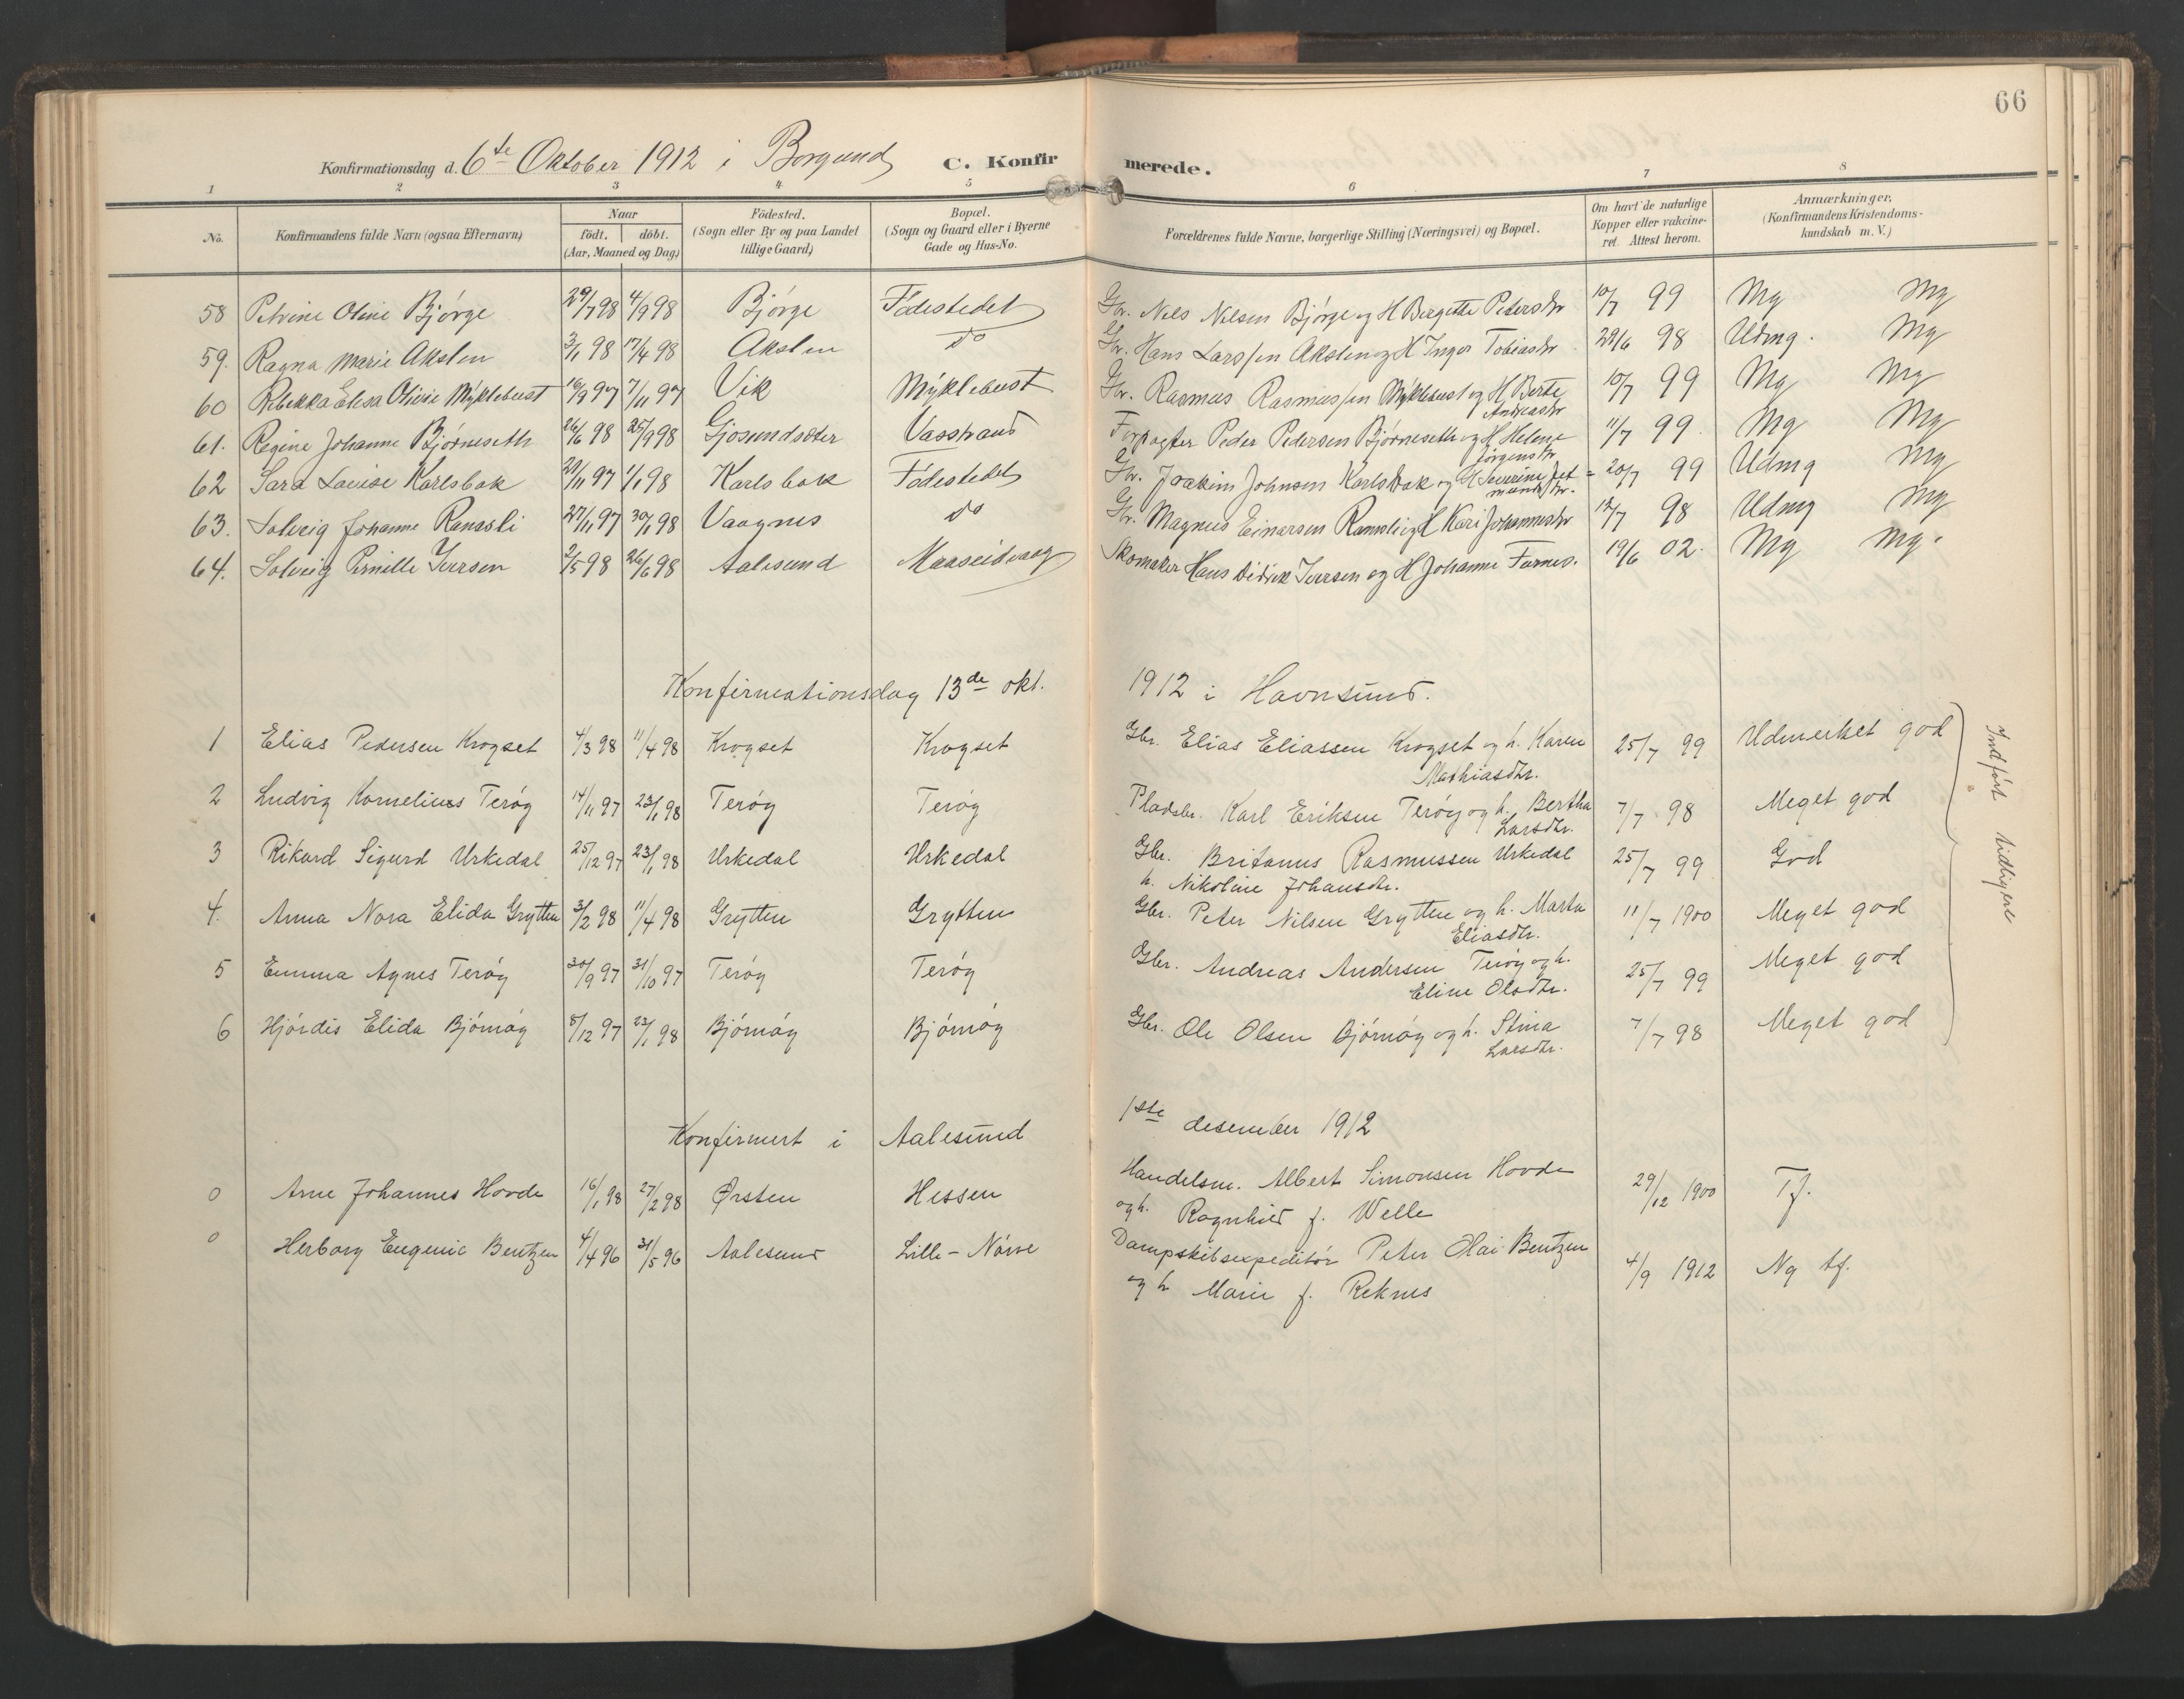 66
Konfirmationsdag d. 6te Oktober 1912 i Borgund C. Konfirmerede.
1 2 3 4 5 6 7 8
No. Konfirmandens fulde Navn (ogsaa Efternavn) Naar født. døbt. (Aar, Maaned og Dag) Födested. (Sogn eller By og paa Landet tillige Gaard) Bopæl. (Sogn og Gaard eller i Byerne Gade og Hus-No. Forældrenes fulde Navne, borgerlige Stilling (Næringsvei) og Bopæl. Om havt de naturlige Kopper eller vakcineret. Attest herom. Anmærkninger. (Konfirmandens Kristendomskundskab m. V.)
58 Petrine Oline Bjørge 29/7 98 4/9 98 Bjørge Fødestedet Gbr. Nels Nelsen Bjørge og H Bergitte Petersdr 10/7 99 Mg Mg
59. Ragna Marie Akslen 3/1 98 17/4 98 Akslen do Gbr. Hans Larssen Akslen og H Inger Tobiasdr 29/6 98 Udmg. Mg
60 Rebekka Elisa Olivie Myklebust 16/9 97 7/11 97 Vik Myklebust Gbr. Rasmus Rasmussen Myklebust og H Berte Andreasdr 10/7 99 Mg Mg
61. Regine Johanne Bjørneseth 26/6 98 25/9 98 Gjosundsæter Vasstrand Forpagter Peder Pedersen Bjørneseth og H Helene Jørgensdr 11/7 99. Mg Mg
62 Sara Lovise Karlsbak 21/11 97 1/1 98 Karlsbak Fødestedet Gbr. Joakim Johnsen Karlsbak og H Severine 20/7 99 Udmg Mg
63. Solveig Johanne Ramsli 27/11 97 30/1 98 Vaagnes do Gbr. Magnus Einarsen Ramsli og H Kari Johannesdr 12/7 98 Udmg Mg
64. Solveig Pernille Iversen 2/5 98 26/6 98 Aalesund Maaseidvaag Skomaker Hans Didrik Iversen og H Johanne Farnes. 19/6 02. Mg Mg.
Konfirmationsdag 13de okt. 1912 i Havnsund.
1 Elias Pedersen Krogset 4/3 98 11/4 98 Krogset Krogset Gbr. Elias Eliassen Krogset og h. Karen Mathiasdtr. 25/7 99 Udmerket god
2 Ludvig Kornelius Terøy 14/11 97 23/1 98 Terøy Terøy Pladsbr. Karl Eriksen Terøy og h. Bertha Larsdtr. 7/7 98 Meget god
3 Rikard Sigurd Urkedal 25/12 97 23/1 98 Urkedal Urkedal Gbr. Britanus Rasmussen Urkedal h. Nikoline Johansdtr. 25/7 99 God
4. Anna Nora Elida Grytten 3/2 98 11/4 98 Grytten Grytten Gbr. Peter Nilsen Grytten og h. Marta Eliasdtr. 11/7 1900 Meget god
5 Emma Agnes Terøy 30/9 97 31/10 97 Terøy Terøy Gbr. Andreas Andersen Terøy og h. Eline Olsdtr. 25/7 99 Meget god
6 Hjørdis Elida Bjørnøy 8/12 97 23/1 98 Bjørnøy Bjørnøy Gbr. Ole Olsen Bjørnøy og h. Stina Larsdtr. 7/7 98 Meget god
Indført tidligere
Konfirmert i Aalesund 1ste desember 1912
0 Arne Johannes Hovde 16/1 98 27/2 98 Ørsten Hessen Handelsm. Albert Simonsen Hovde og h. Ragnhild f. Welle 29/12 1900 Tf.
0 Herborg Eugenie Bentzen 4/4 96 31/5 96 Aalesund Lille-Nørve Dampskibsexpeditør Peter Olai Bentzen og h Marie f. Reknes 4/9 1912 Ng tf.